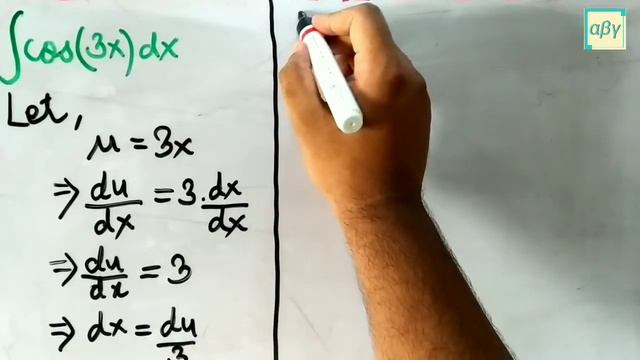 ∫cos(3x)dx
Let,
u = 3x
⇒ du/dx = 3.dx/dx
⇒ du/dx = 3
⇒ dx = du/3
αβγ